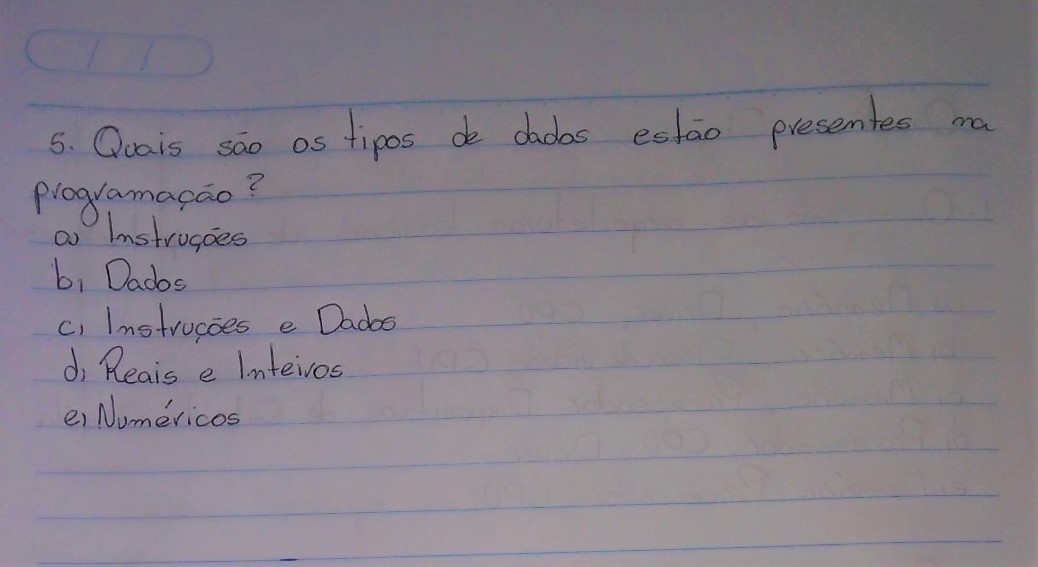 5. Quais são os tipos de dados estão presentes na
programação?
a) Instruções
b) Dados
c) Instruções e Dados
d) Reais e Inteiros
e) Numéricos